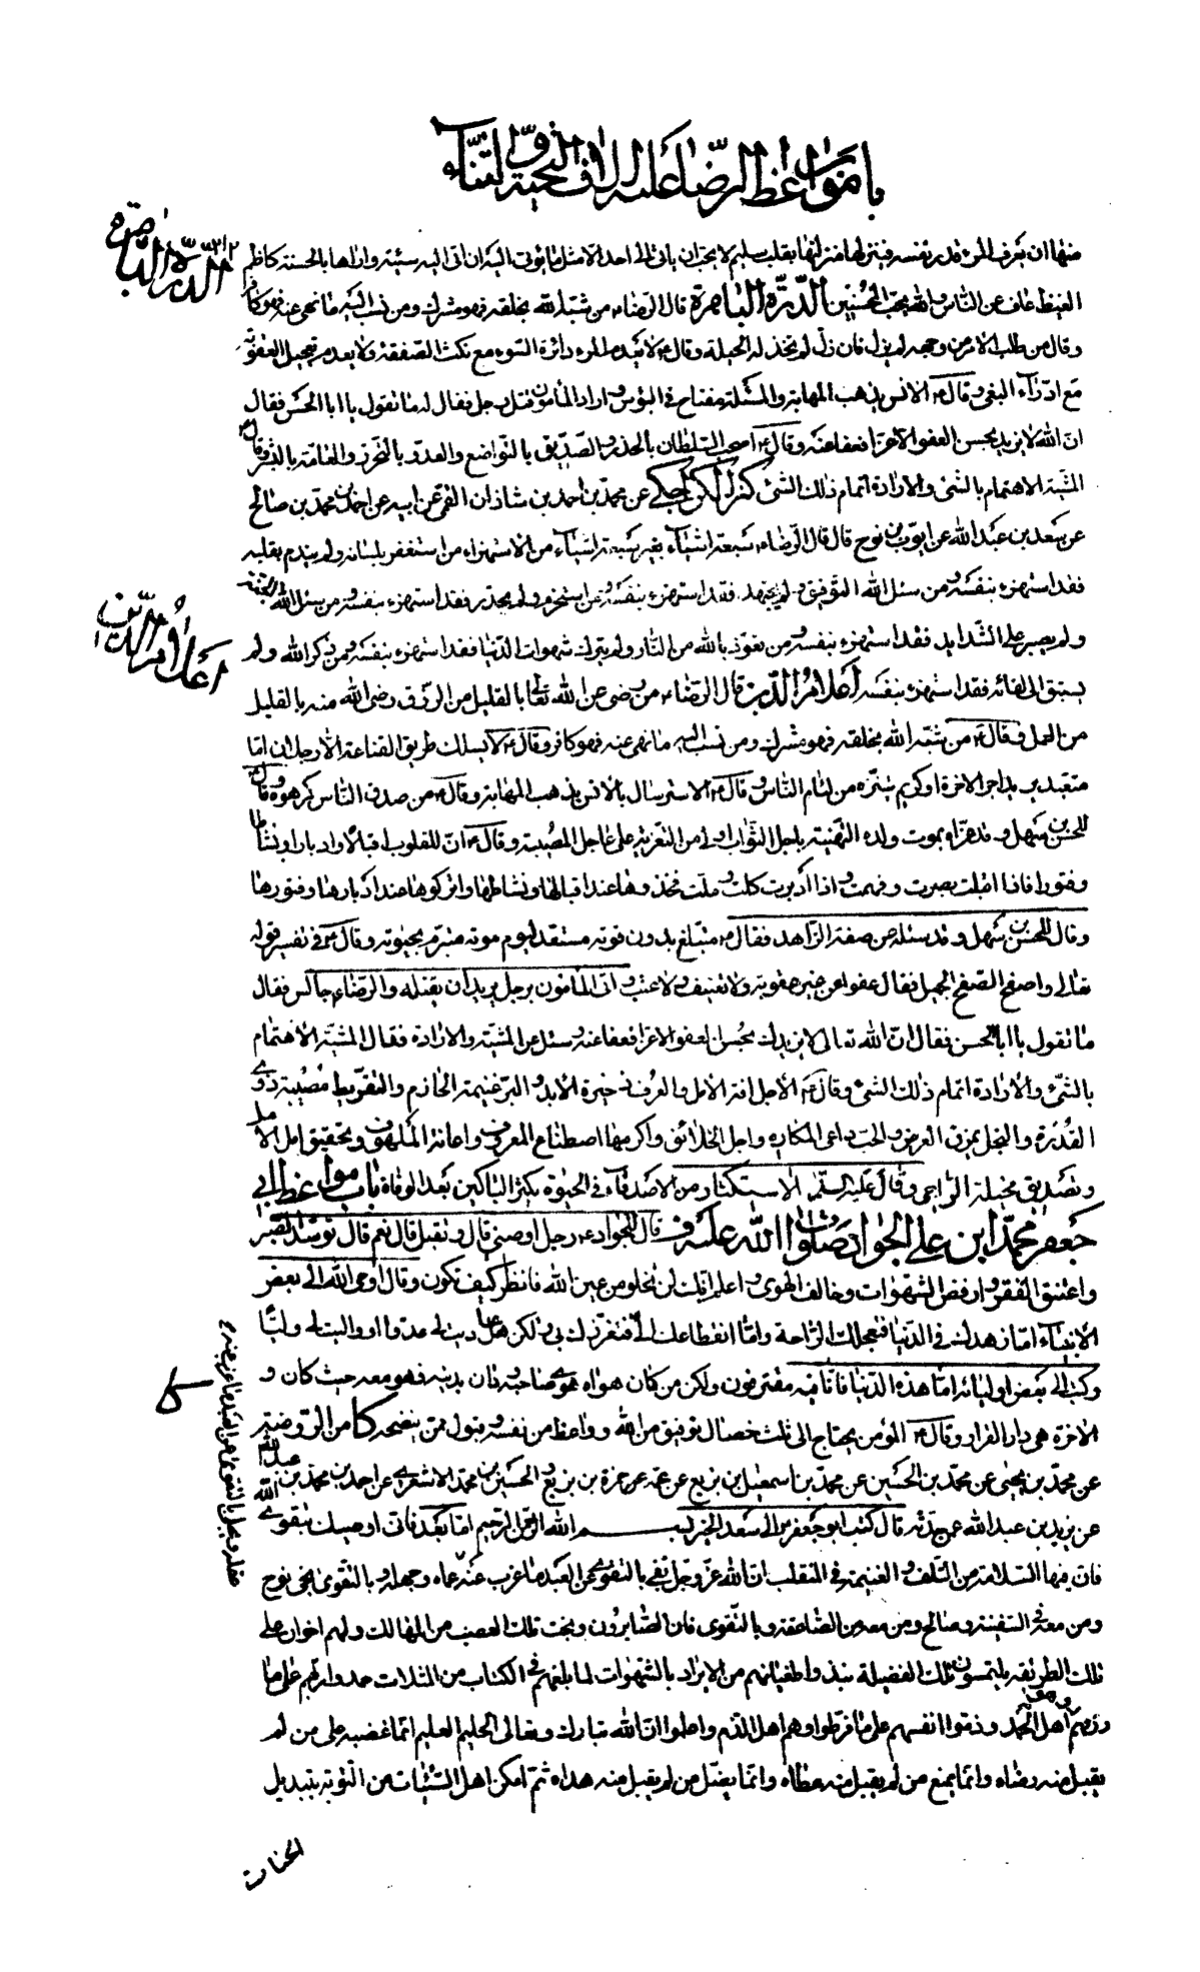 باب مواعظ الرضا عليه الاف التحية والثناء
منها ان يعرف المرء قدر نفسه فينزلها منزلتها بقلب سليم لا يحب ان ياتى الى احد الا مثل ما يؤتى اليه ان اتى اليه سيئة واراها بالحسنة كاظم
الدرة الباصرة
الغيظ عاف عن الناس والله يحب المحسنين الدرة الباصرة قال الرضاء من شبه الله بخلقه فهو مشرك ومن نسب اليه ما نهى عنه فهو كافر
وقال من طلب الامر من وجهه لم يزل فان زل لم تخذله الحيلة وقال ع لا يعدم المرء دائرة السوء مع نكث الصفقة ولا يعدم تعجيل العقوبة
مع ادراء البغى وقال ع الانس يذهب المهابة والمسئلة مفتاح فى البؤس واراد المأمون قتل رجل فقال له ما تقول يا ابا الحسن فقال
ان الله لا يزيد بحسن العفو الا عزا فعفا عنه وقال ع اصحب السلطان بالحذر والصديق بالتواضع والعدو بالتحرز والعامة بالبشر وقال ع
المشية الاهتمام بالشئ والارادة اتمام ذلك الشئ كنز الكراجكى عن محمد بن احمد بن شاذان القمى عن ابيه عن احمد بن محمد بن صالح
عن سعد بن عبد الله عن ايوب بن نوح قال قال الرضاء سبعة اشياء بغير سبعة اشياء من الاستهزاء من استغفر بلسانه ولم يندم بقلبه
فقد استهزء بنفسه ومن سئل الله التوفيق ولم يجتهد فقد استهزء بنفسه ومن استحزم ولم يحذر فقد استهزء بنفسه ومن سئل الله الجنة
ولم يصبر على الشدايد فقد استهزء بنفسه ومن تعوذ بالله من النار ولم يترك شهوات الدنيا فقد استهزء بنفسه ومن ذكر الله ولم
اعلام الدين
يستبق الى لقائه فقد استهزء بنفسه اعلام الدين قال الرضاء من رضى عن الله تعالى بالقليل من الرزق رضى الله منه بالقليل
من العمل وقال ع من شبه الله بخلقه فهو مشرك ومن نسب اليه ما نهى عنه فهو كافر وقال ع لا يسلك طريق القناعة الا رجلان اما
متعبد يريد اجر الاخرة او كريم يتنزه من لئام الناس وقال ع الاسترسال بالانس يذهب المهابة وقال ع من صدق الناس كرهوه وقال ع
للحسن بن سهل وقد عزاه بموت ولده التهنئة باجل الثواب اولى من التعزية على عاجل المصيبة وقال ع ان للقلوب اقبالا وادبارا ونشاطا
وفتورا فاذا اقبلت بصرت وفهمت واذا ادبرت كلت وملت فخذوها عند اقبالها ونشاطها واتركوها عند ادبارها وفتورها
وقال للحسن بن سهل وقد سئله عن صفة الزاهد فقال ع متبلغ بدون قوته مستعد ليوم موته متبرم بحيوته وقال ع فى تفسير قوله
تعالى واصفح الصفح الجميل فقال عفوا عن غير عقوبة ولا تعنيف ولا عتب واتى المأمون برجل يريد ان يقتله والرضاء جالس فقال
ما تقول يا ابا الحسن فقال ان الله تعالى لا يزيدك بحسن العفو الا عزا فعفا عنه وسئل عن المشية والارادة فقال المشية الاهتمام
بالشئ والارادة اتمام ذلك الشئ وقال ع الاجل افة الامل والعرف ذخيرة الابد والبر غنيمة الحازم والتفريط مصيبة ذوى
القدرة والبخل يمزق العرض والحب داعى المكاره واجل الخلائق واكرمها اصطناع المعروف واغاثة الملهوف وتحقيق امل الامل
وتصديق مخيلة الراجى وقال عليه السلام الاستكثار من الاصدقاء فى الحيوة يكثر الباكين بعد الوفاة باب مواعظ ابى
جعفر محمد ابن على الجواد صلوات الله عليه ف قال للجواد ع رجل اوصنى قال وتقبل قال نعم قال توسد الصبر
واعتنق الفقر وارفض الشهوات وخالف الهوى واعلم انك لن تخلو من عين الله فانظر كيف تكون وقال اوحى الله الى بعض
الانبياء اما زهدك فى الدنيا فتعجلك الراحة واما انقطاعك الى فتعززك بى ولكن هل عاديت لى عدوا او واليت لى وليا
وكتب الى بعض اوليائه اما هذه الدنيا فانا فيه مغترفون ولكن من كان هواه هوى صاحبه ودان بدينه فهو معه حيث كان و
الاخرة هى دار القرار وقال ع المؤمن يحتاج الى ثلث خصال توفيق من الله وواعظ من نفسه وقبول ممن ينصحه كا من الروضة
كا
عن محمد بن يحيى عن محمد بن الحسين عن محمد بن اسمعيل بن بزيع عن عمه حمزة بن بزيع والحسين بن محمد الاشعرى عن احمد بن محمد بن عبد الله
عن يزيد بن عبد الله عمن حدثه قال كتب ابو جعفر ع الى سعد الخير بسم الله الرحمن الرحيم اما بعد فانى اوصيك بتقوى الله
فان فيها السلامة من التلف والغنيمة فى المنقلب ان الله عز وجل يقى بالتقوى عن العبد ما عزب عنه عقله ويجلى بالتقوى عنه عماه وجهله وبالتقوى نجى نوح
ومن معه فى السفينة وصالح ومن معه من الصاعقة وبالتقوى فاز الصابرون ونجت تلك العصب من المهالك ولهم اخوان على
تلك الطريقة يلتمسون تلك الفضيلة نبذوا طغيانهم من الايراد بالشهوات لما بلغهم فى الكتاب من المثلات حمدوا ربهم على ما
رزقهم وهو اهل الحمد وذموا انفسهم على ما فرطوا وهم اهل الذم واعلموا ان الله تبارك وتعالى الحليم العليم انما غضبه على من لم
يقبل منه رضاه وانما يمنع من لم يقبل منه عطاه وانما يضل من لم يقبل منه هداه ثم امكن اهل السيئات من التوبة بتبديل
الحسنات